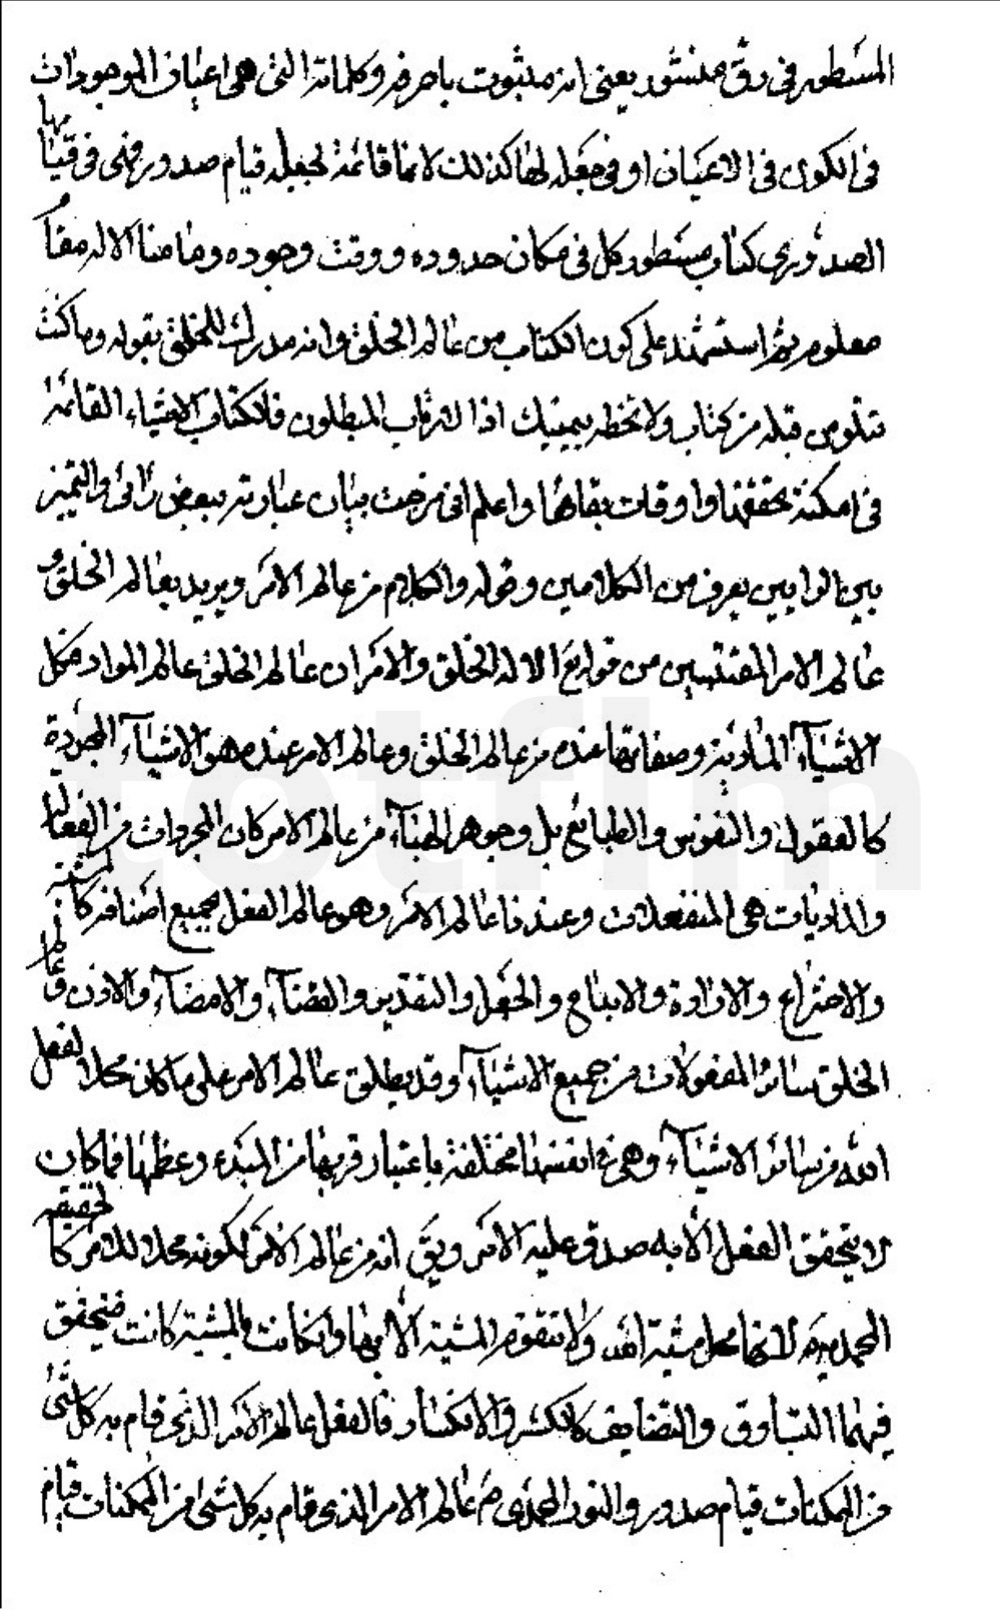 المسطور في رق منشور يعني انه مثبوت باحرفه وكلماته التي هي اعيان الموجودات
في الكون في الاعيان او في جعله لها كذلك لانها قائمة بجعله قيام صدور فهي في قيامها
الصدوري كتاب مسطور كل في مكان حدوده ووقت وجوده وما منا الا له مقام
معلوم ثم استشهد على كون الكتاب من عالم الخلق وانه مدرك للخلق بقوله وما كنت
تتلو من قبله من كتاب ولا تخطه بيمينك اذا لارتاب المبطلون فالكتاب الاشياء القائمة
في امكنة تحققها واوقات بقائها واعلم اني مزجت بيان عبارته ببعض رائي والتميز
بين الرايين يعرف من الكلامين وقوله والكلام من عالم الامر ويريد بعالم الخلق و
عالم الامر المقتبسين من قوله تع الا له الخلق والامر ان عالم الخلق عالم المواد فكل
الاشياء المادية وصفاتها عنده من عالم الخلق وعالم الامر عنده هو الاشياء المجردة
كالعقول والنفوس والطبائع بل وجوهر الهباء من عالم الامر كان المجردات من
والماديات هي المنفعلات وعندنا عالم الامر وهو عالم الفعل بجميع اصنافه كالمشية
والاختراع والارادة والابداع والجعل والتقدير والقضاء والامضاء والاذن وعالم
الخلق سائر المفعولات من جميع الاشياء وقد يطلق عالم الامر على ما كان محلا لفعل
الله من سائر الاشياء وهي في انفسها مختلفة باعتبار قربها من البدء وعظمها فما كان
لا يتحقق الفعل الا به صدق عليه الامر ويق انه من عالم الامر لكونه محلا للامر كالحقيقة
المحمدية لانها محل مشية الله ولا تتقوم المشية الا بها وان كانت بالمشية كانت فيتحقق
فيهما التساوق والتضايف كالكسر والانكسار فالفعل عالم الامر الذي قام به كل شئ
من الممكنات قيام صدور والنور المحمدي ص عالم الامر الذي قام به كل شئ من الممكنات قيام